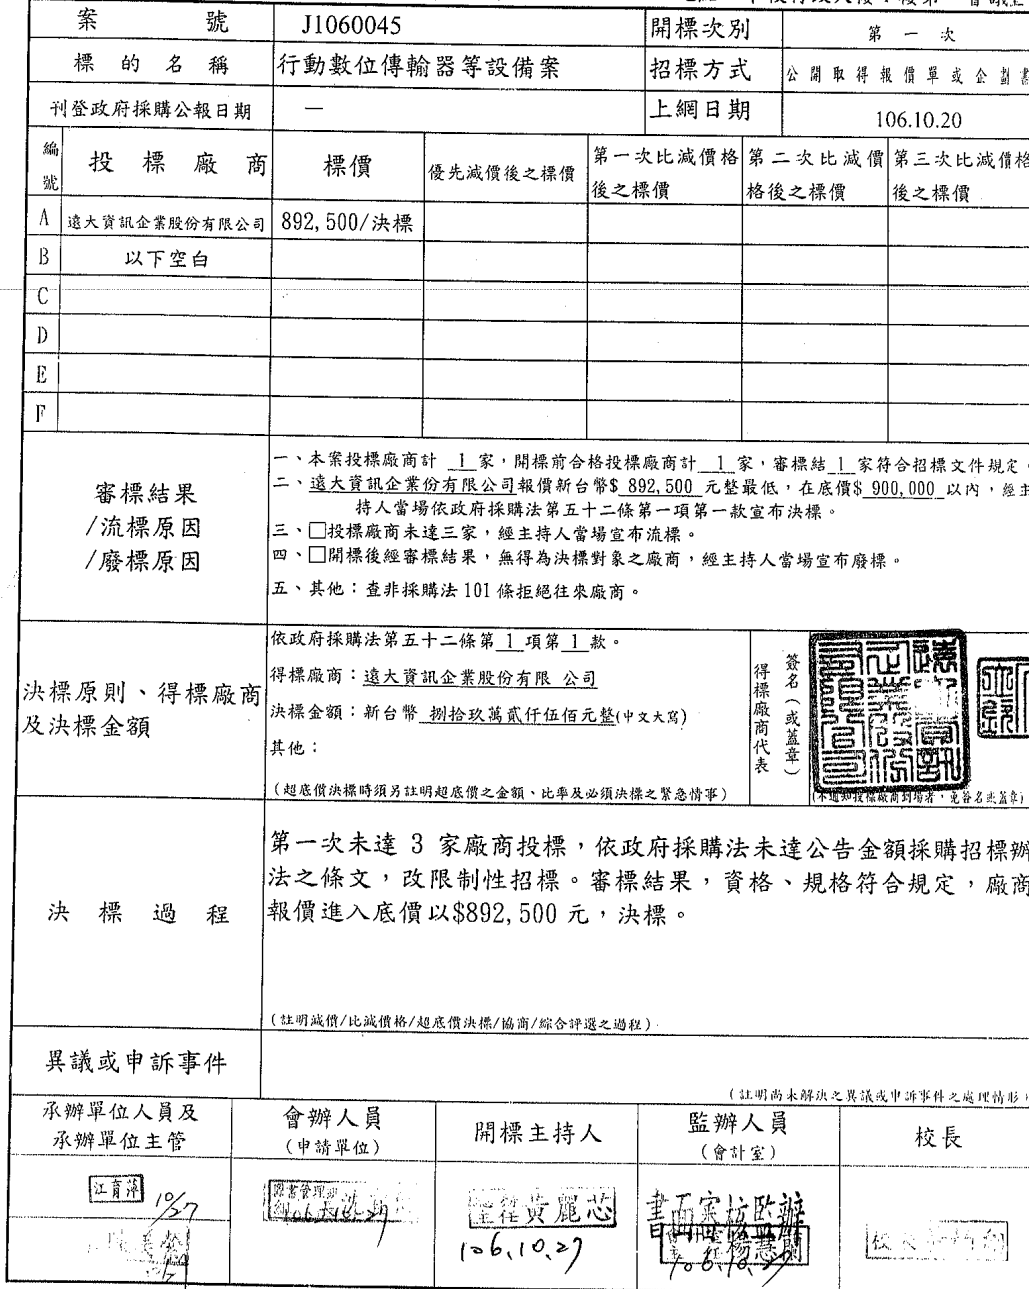 案號 J1060045 開標次別 第一次
標的名稱 行動數位傳輸器等設備案 招標方式 公開取得報價單或企劃書
刊登政府採購公報日期 — 上網日期 106.10.20
編號 投標廠商 標價 優先減價後之標價 第一次比減價格後之標價 第二次比減價格後之標價 第三次比減價格後之標價
A 遠大資訊企業股份有限公司 892,500/決標
B 以下空白
C
D
E
F
審標結果
/流標原因
/廢標原因
一、本案投標廠商計 1 家,開標前合格投標廠商計 1 家,審標結 1 家符合招標文件規定。
二、遠大資訊企業份有限公司報價新台幣$ 892,500 元整最低,在底價$ 900,000 以內,經主
持人當場依政府採購法第五十二條第一項第一款宣布決標。
三、□投標廠商未達三家,經主持人當場宣布流標。
四、□開標後經審標結果,無得為決標對象之廠商,經主持人當場宣布廢標。
五、其他:查非採購法 101 條拒絕往來廠商。
決標原則、得標廠商
及決標金額
依政府採購法第五十二條第 1 項第 1 款。
得標廠商:遠大資訊企業股份有限 公司
決標金額:新台幣 捌拾玖萬貳仟伍佰元整(中文大寫)
其他:
(超底價決標時須另註明超底價之金額、比率及必須決標之緊急情事)
得標廠商代表
簽名(或蓋章)
(不通知投標廠商到場者,免簽名或蓋章)
決標過程
第一次未達 3 家廠商投標,依政府採購法未達公告金額採購招標辦
法之條文,改限制性招標。審標結果,資格、規格符合規定,廠商
報價進入底價以$892,500 元,決標。
(註明減價/比減價格/超底價決標/協商/綜合評選之過程)
異議或申訴事件
(註明尚未解決之異議或申訴事件之處理情形)
承辦單位人員及
承辦單位主管
會辦人員
(申請單位)
開標主持人
監辦人員
(會計室)
校長
江育萍 10/27
黃麗芯
106.10.27
書面審核監辦
楊慧蘭
106.10.27